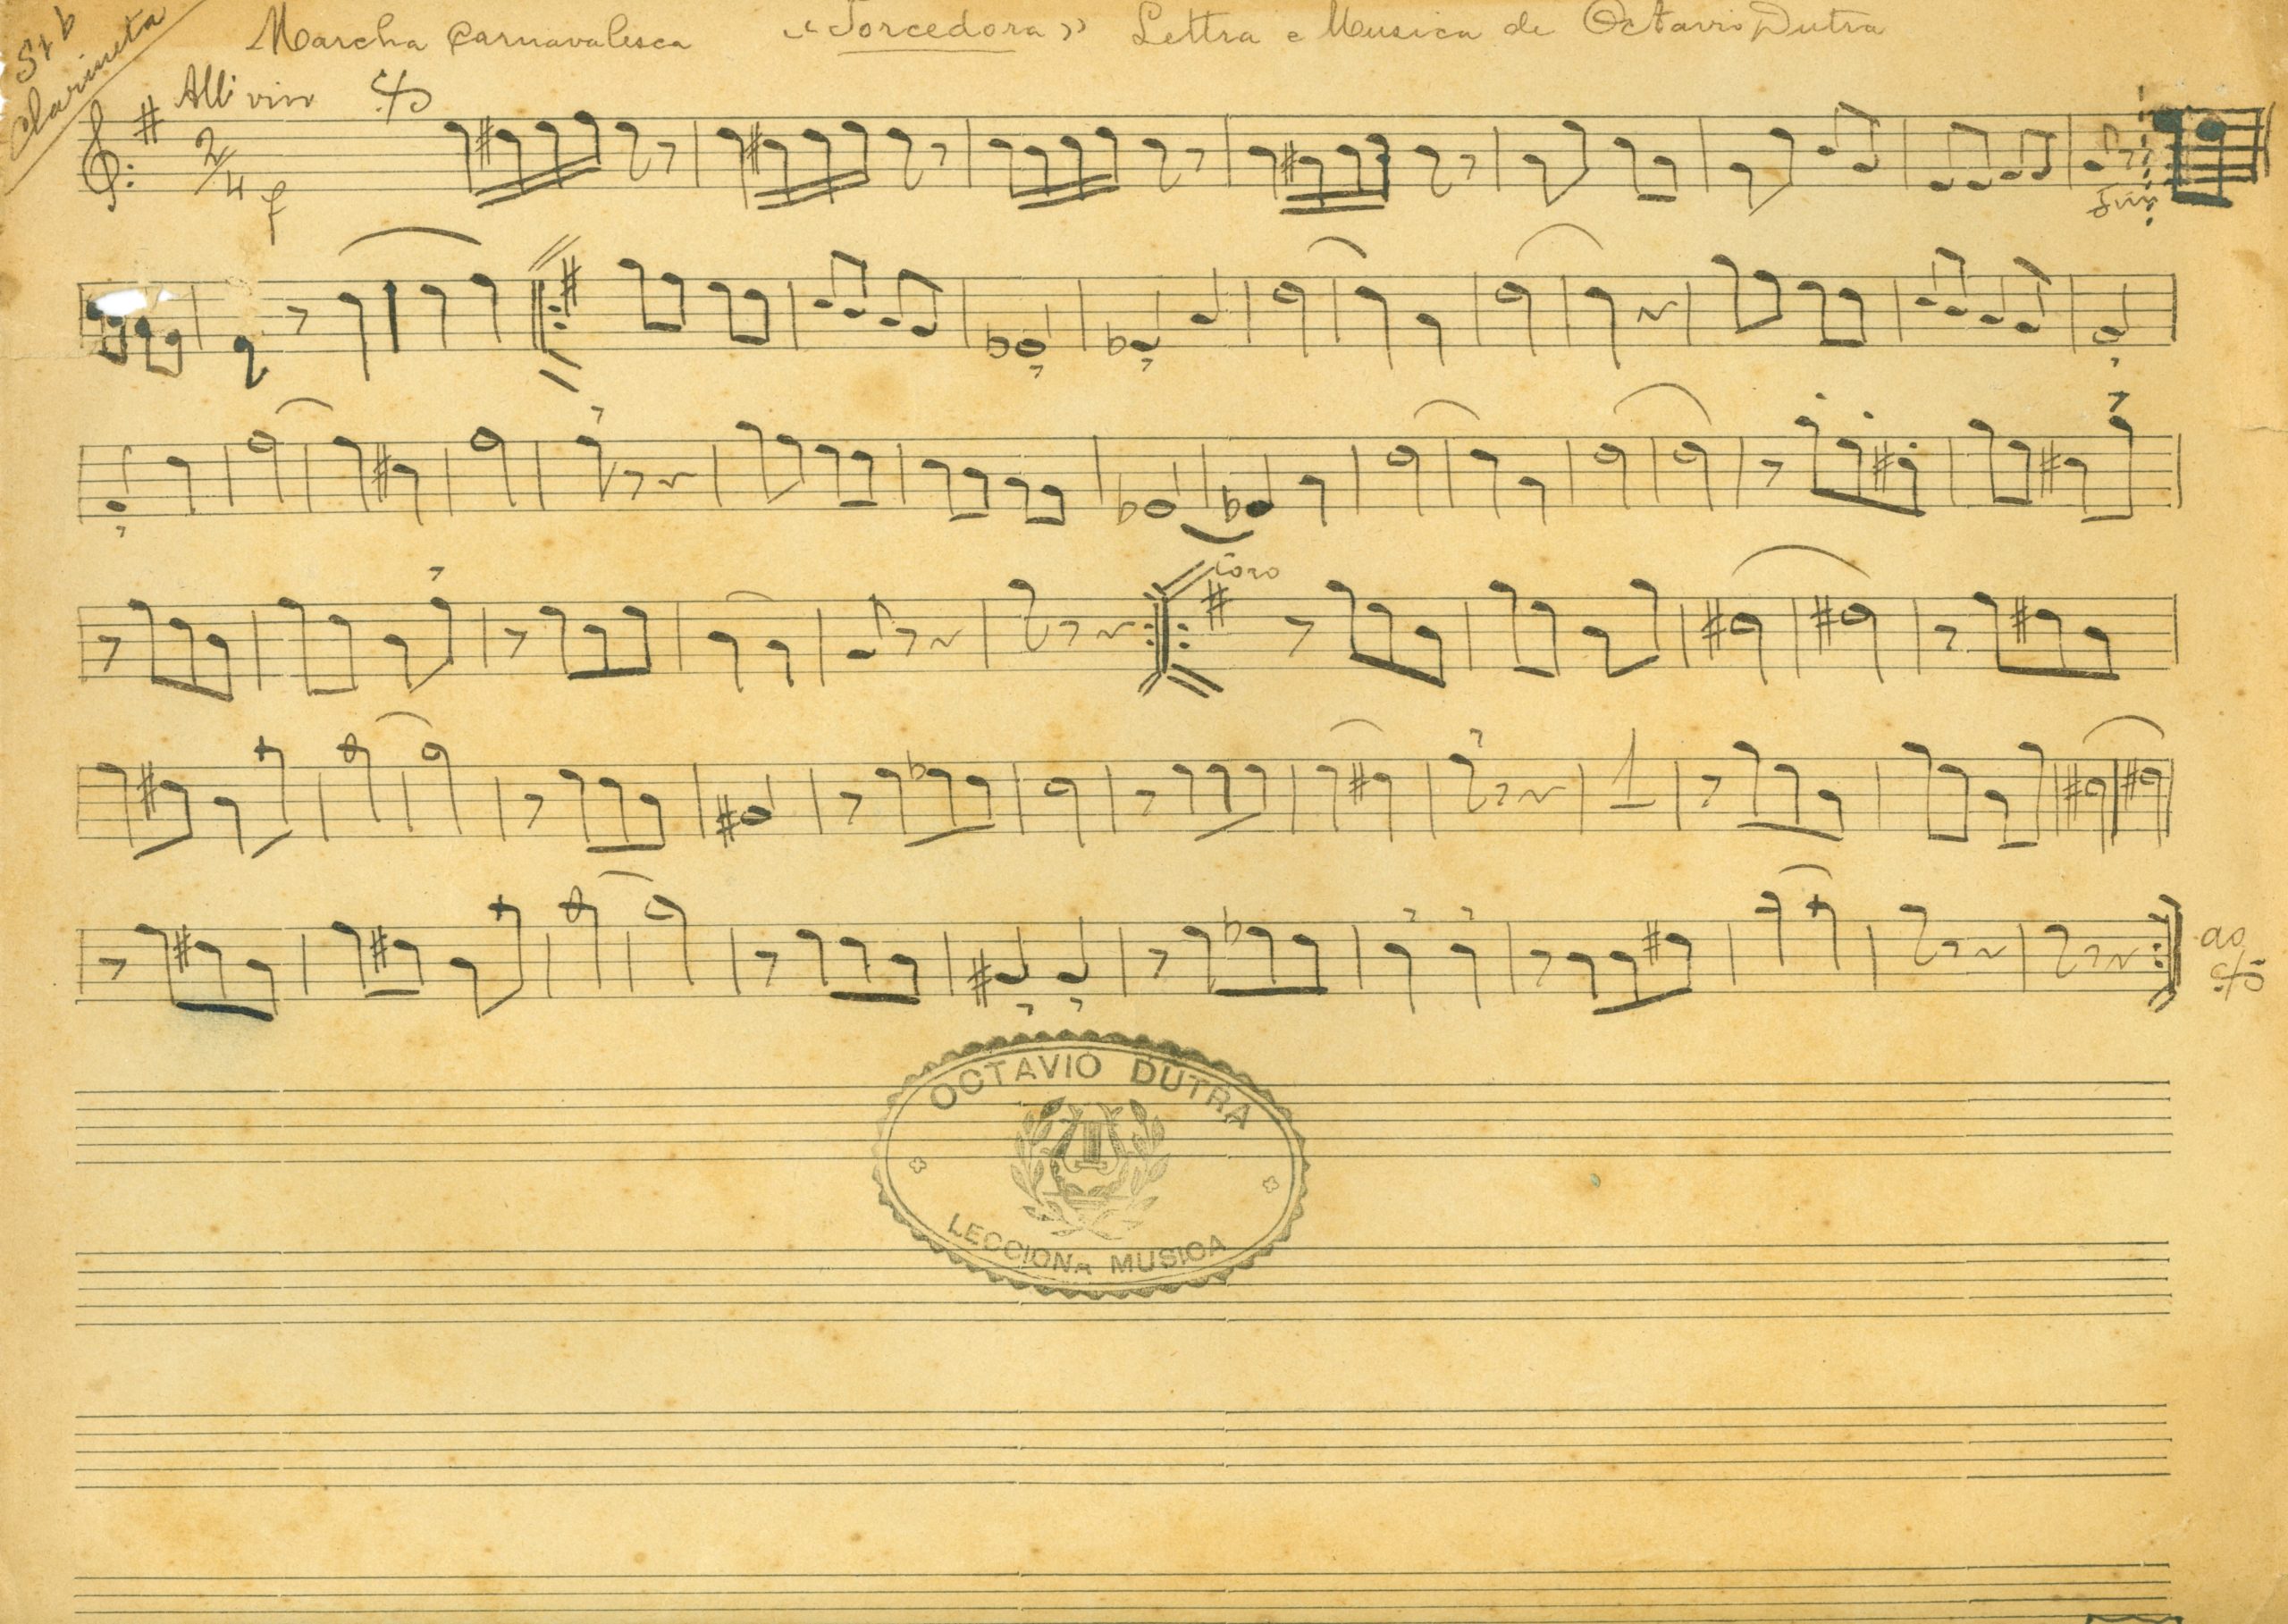 Si b
Clarineta
Marcha Carnavalesca «Torcedora» Lettra e Musica de Octavio Dutra
All: vivo
2/4
f
Fim
Coro
1
ao
OCTAVIO DUTRA
LECCIONA MUSICA